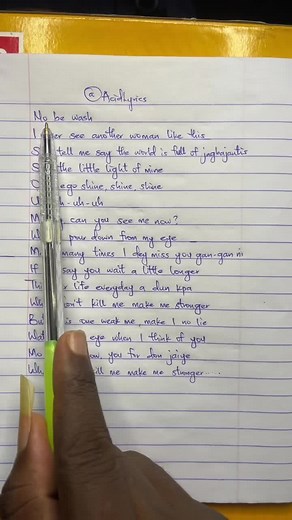 @ AcidLyrics
No be wash
I see another woman like this
S tell me say the world is full of jaghajantis
S the little light of mine
ego shine, shine, shine
U h-uh-uh
M can you see me now?
W pour down from my eye
M many times I dey miss you gan-gan ni
If say you wait a little longer
Thi life everyday a dun kpa
Wh n't kill me make me stronger
Bu is one weak me, make I no lie
Wat eye when I think of you
Mo you for don jaiye
Wh kill me make me stronger....